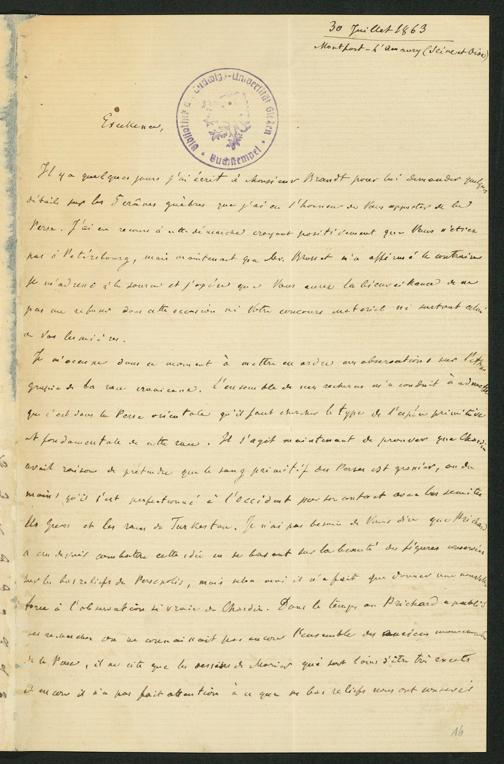 30 Juillet 1863
Montfort-l'Amaury (Seine et Oise)
Bibliothek d. Ludwigs-Universität Giessen
Buchstempel
Excellence,
Il y a quelques jours j'ai écrit à Monsieur Brandt pour lui demander quelques
détails sur les 5 crânes guèbres que j'ai eu l'honneur de Vous apporter de la
Perse. J'ai eu recours à cette démarche croyant positivement que Vous n'etiez
pas à Pétersbourg, mais maintenant que Mr. Brosset m'a affirmé le contraire
je m'adresse à la source et j'espère que Vous aurez la bienveillance de ne
pas me refuser dans cette occasion ni Votre concours materiel ni surtout celui
de Vos lumières.
Je m'occupe dans ce moment à mettre en ordre mes observations sur l'
de la race eranienne. L'ensemble de mes recherches m'a conduit à admettre
que c'est dans la Perse orientale qu'il faut chercher le type de l'espèce primitive
et fondamentale de cette race. Il s'agit maintenant de prouver que Chardin
avait raison de prétendre que le sang primitif des Perses est grossier, ou du
moins qu'il s'est perfectionné à l'Occident par son contact avec les semites
les Grecs et les races du Turkestan. Je n'ai pas besoin de Vous dire que Prichard
a cru devoir combattre cette idée en se basant sur la beauté des figures conservées
sur les bas reliefs de Persepolis, mais selon moi il n'a fait que donner une nouvelle
force à l'observation si vraie de Chardin. Dans le temps où Prichard a publié
ses recherches on ne connaissait pas encore l'ensemble des anciens monuments
de la Perse, il ne cite que les dessins de Morier qui sont loin d'être très exacts
et encore il n'a pas fait attention à ce que ces bas reliefs nous ont conservé
16